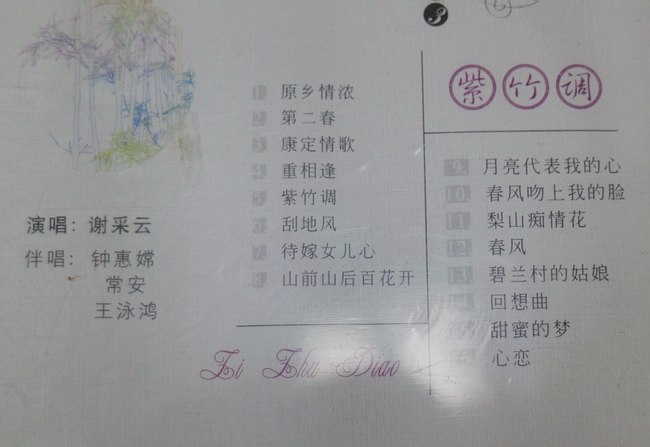 3
紫竹调
1 原乡情浓
2 第二春
3 康定情歌
4 重相逢
5 紫竹调
6 刮地风
7 待嫁女儿心
8 山前山后百花开
9. 月亮代表我的心
10. 春风吻上我的脸
11 梨山痴情花
12 春风
13 碧兰村的姑娘
回想曲
甜蜜的梦
心恋
演唱：谢采云
伴唱：钟惠嫦
常安
王泳鸿
Zi Zhu Diao